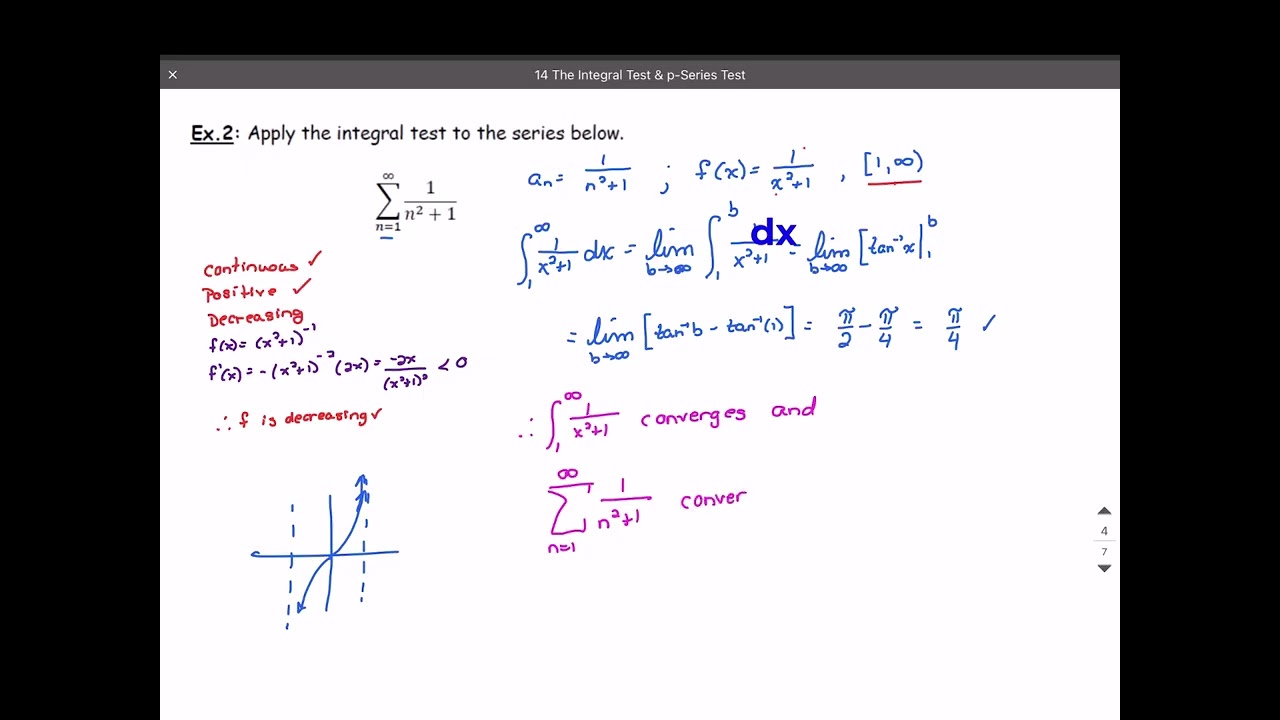 14 The Integral Test & p-Series Test
Ex.2: Apply the integral test to the series below.
∞
∑ 1/(n² + 1)
n=1
aₙ = 1/(n²+1) ; f(x) = 1/(x²+1) , [1,∞)
∫₁^∞ 1/(x²+1) dx = lim b→∞ ∫₁^b 1/(x²+1) dx = lim b→∞ [tan⁻¹x|₁^b
= lim b→∞ [tan⁻¹b − tan⁻¹(1)] = π/2 − π/4 = π/4 ✓
continuous ✓
Positive ✓
Decreasing
f(x) = (x²+1)⁻¹
f'(x) = -(x²+1)⁻²(2x) = -2x/(x²+1)² < 0
∴ f is decreasing ✓
∴ ∫₁^∞ 1/(x²+1) converges and
∞
∑ 1/(n²+1) conver
n=1
4
7